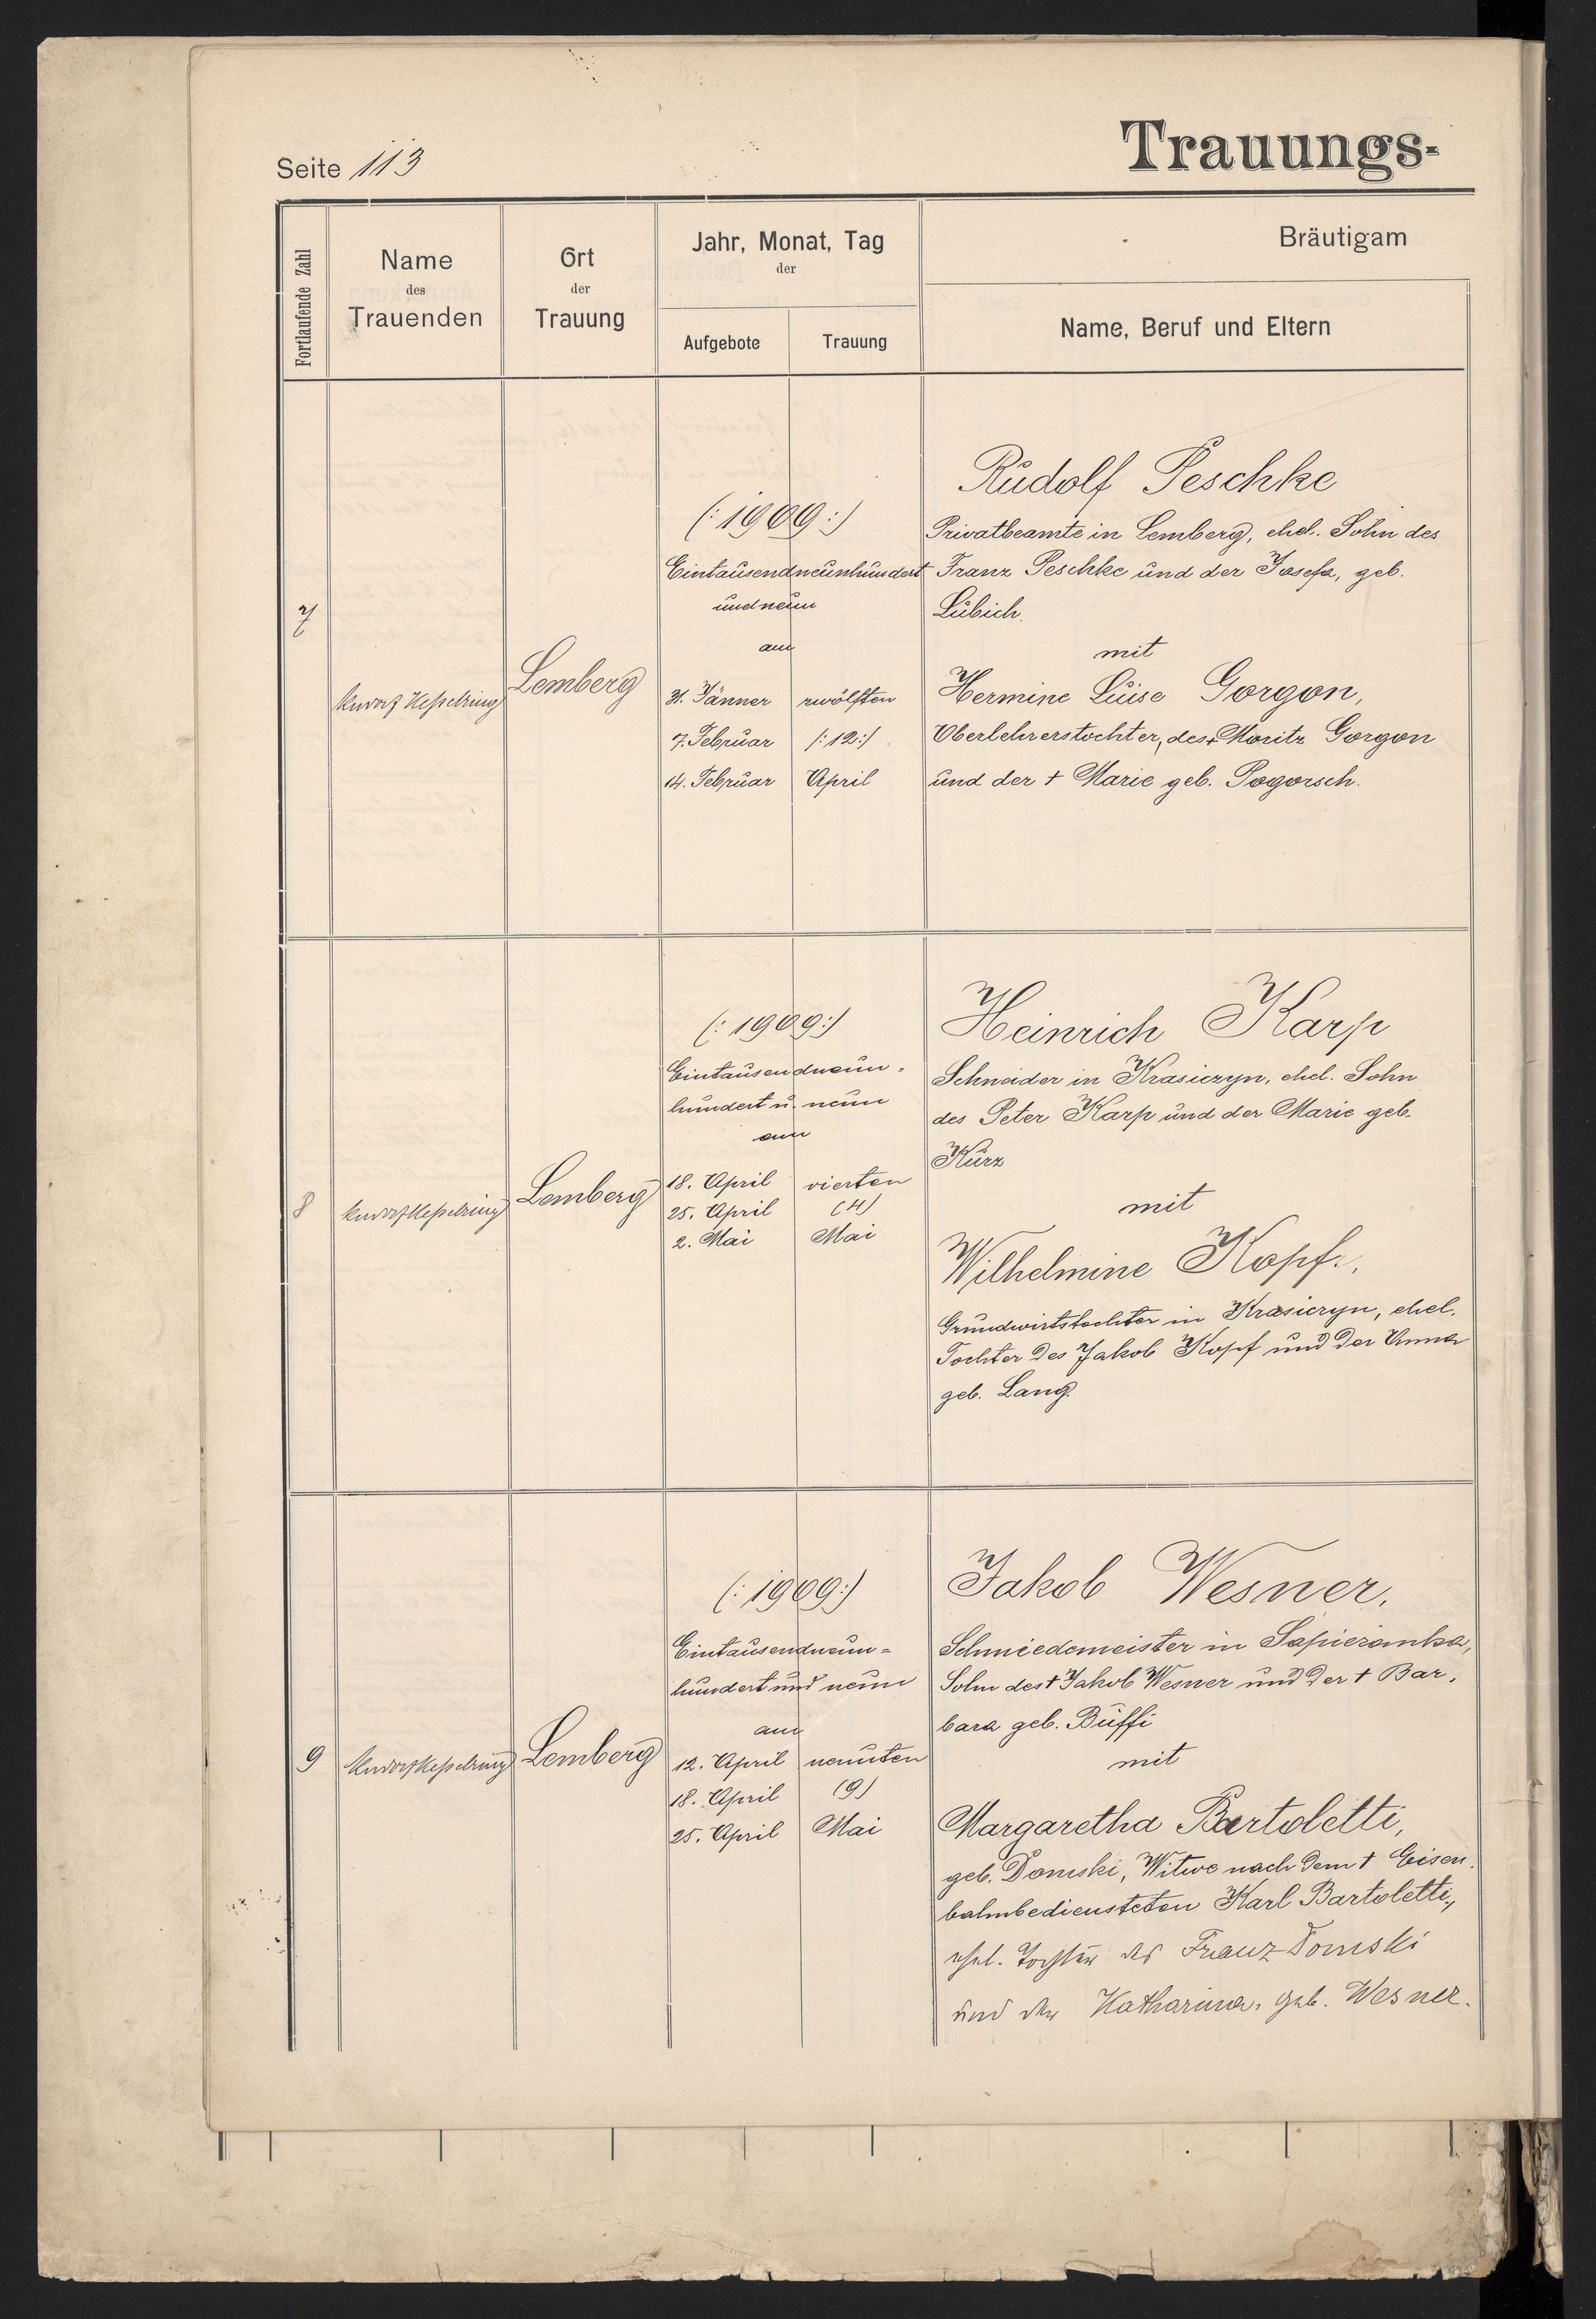 Seite 113
Trauungs-
Fortlaufende Zahl
Name
des
Trauenden
Ort
der
Trauung
Jahr, Monat, Tag
der
Aufgebote
Trauung
Bräutigam
Name, Beruf und Eltern
7
Kesselring
Lemberg
(: 1909 :)
Eintausendneunhundert
und neun
am
31. Jänner
7. Februar
14. Februar
zwölften
/: 12 :/
April
Rudolf Peschke
Privatbeamte in Lemberg, ehel. Sohn des
Franz Peschke und der Josefa, geb.
Lubich.
mit
Hermine Luise Gorgon,
Oberlehrerstochter, des † Moritz Gorgon
und der † Marie geb. Pogorsch.
8
Kesselring
Lemberg
(: 1909 :)
Eintausendneun-
hundert u. neun
am
18. April
25. April
2. Mai
vierten
(4)
Mai
Heinrich Karp
Schneider in Krasiczyn, ehel. Sohn
des Peter Karp und der Marie geb.
Kurz
mit
Wilhelmine Kopf.,
Grundwirtstochter in Krasiczyn, ehel.
Tochter des Jakob Kopf und der Anna
geb. Lang.
9
Kesselring
Lemberg
(: 1909 :)
Eintausendneun=
hundert und neun
am
12. April
18. April
25. April
neunten
(9)
Mai
Jakob Wesner,
Schmiedemeister in Sapiezanka,
Sohn des † Jakob Wesner und der † Bar-
bara geb. Buffi
mit
Margaretha Bartoletti,
geb. Domski, Witwe nach dem † Eisen-
bahnbediensteten Karl Bartoletti,
ehel. Tochter des Franz Domski
und der Katharina, geb. Wesner.